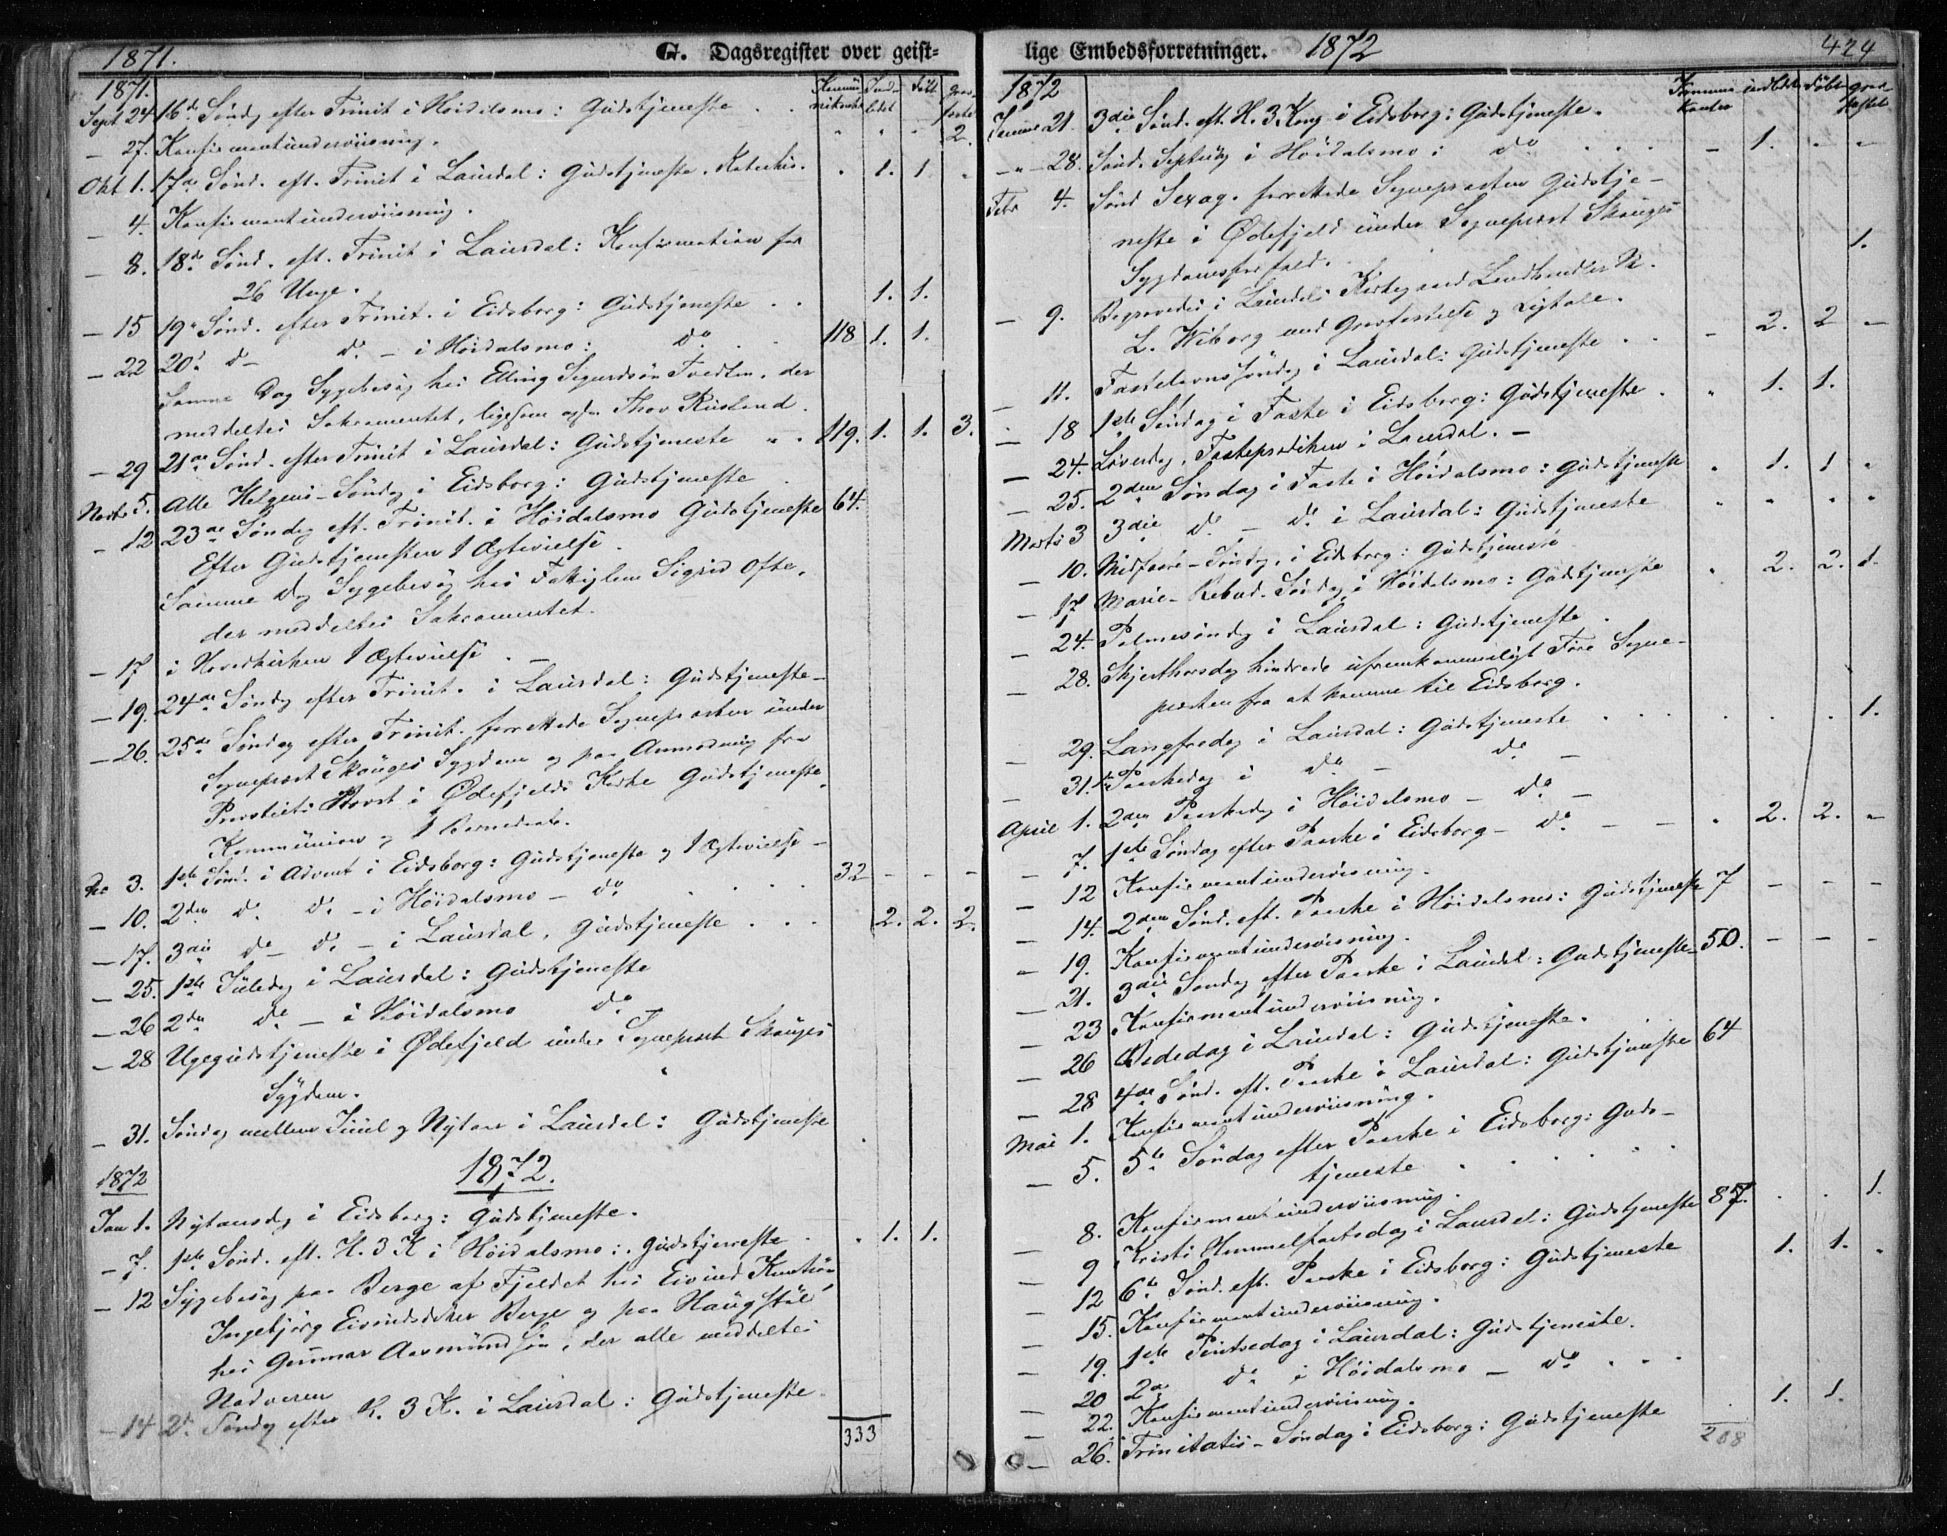 1871. G. Dagsregister over geist-
1871. Kommunikanter Indledet døbt gravfæstet
Sept 24 16de Sønd. efter Trinit i Høidalsmo: Gudstjeneste . . " " " 2.
— 27. Konfirmantunderviisning.
Okt 1. 17de Sønd. eft. Trinit i Laurdal: Gudstjeneste. Katechis. . 1. 1. .
— 4. Konfirmantunderviisning.
— 8. 18de Sønd. eft. Trinit i Laurdal: Konfirmation for
26 Unge. 1. 1.
— 15 19de Sønd. efter Trinit. i Eidsborg: Gudstjeneste . . 118 1. 1.
— 22 20de do — do — i Høidalsmo: do . . .
Samme Dag Sygebesøg hos Elling Sigurdsøn Tvedten, der
meddeltes Sakramentet, ligesom ogsaa Thor Rusland.
— 29 21de Sønd. efter Trinit i Laurdal: Gudstjeneste " . 119. 1. 1. 3.
Novbr 5. Alle Helgens-Søndag i Eidsborg: Gudstjeneste .
— 12 23de Søndag eft. Trinit. i Høidalsmo Gudstjeneste 64.
Efter Gudstjenesten 1 Ægtevielse.
Samme Dag Sygebesøg hos Fattiglem Sigrid Ofte,
der meddeltes Sakramentet.
— 17 i Hovedkirken 1 Ægtevielse . —
— 19. 24de Søndag efter Trinit. i Laurdal: Gudstjeneste —
— 26. 25de Søndag efter Trinit. forrettede Sognepræsten under
Sognepræst Skauges Sygdom og paa Anmodning fra
Provstiets Provst i Ødefjelds Kirke Gudstjeneste,
Kommunion og 1 Barnedaab.
De 3. 1ste Sønd. i Advent i Eidsborg: Gudstjeneste og 1 Ægtevielse — 32 - - -
— 10. 2den do do — i Høidalsmo — do . . . .
— 17. 3die do — do — i Laurdal, Gudstjeneste . . . 2. 2. 2.
— 25. 1ste Juledag i Laurdal: Gudstjeneste
— 26 2den do — i Høidalsmo do
— 28 Ugegudstjeneste i Ødefjeld under Sognepræst Skauges
Sygdom.
— 31. Søndag mellem Juul og Nytaar i Laurdal: Gudstjeneste .
1872 1872.
Jan 1. Nytaarsdag i Eidsborg: Gudstjeneste.
— 7. 1ste Sønd. eft. H. 3 K i Høidalsmo: Gudstjeneste . . 1. 1.
— 12 Sygebesøg paa Berge af Fjeldet hos Eivind Knutsøn
Ingebjørg Eivindsdatter Berge og paa Haugstøl
hos Gunnar Aasmundsøn, der alle meddeltes
Nadveren
— 14 2de Søndag efter H. 3 K. i Laurdal: Gudstjeneste.
333
lige Embedsforretninger. 1872 424
1872 Kommunikanter indledte døbt gravfæstet
Januar 21. 3die Sønd. eft. H. 3 Kong i Eidsborg: Gudstjeneste.
— " — 28. Sønd. Septuag i Høidalsmo: do . . . — 1. . "
Febr 4. Sønd Sexag. forrettede Sognepræsten Gudstje-
neste i Ødefjeld under Sognepræst Skauges
Sygdomsforfald. 1.
— 9. Begravedes i Laurdals Kirkegaard Landhandler N.
L. Wiborg med Gravfæstelse og Ligtale.
— 11. Fastelavns Søndag i Laurdal: Gudstjeneste . . — 2. 2 —
— 18 1ste Søndag i Faste i Eidsborg: Gudstjeneste . " 1. 1.
— 24. Løverdag, Fasteprædiken i Laurdal. —
— 25. 2den Søndag i Faste i Høidalsmo: Gudstjeneste " 1. 1 "
Marts 3 3die do — do i Laurdal: Gudstjeneste " " " "
— 10. Midfaste-Søndag, i Eidsborg: Gudstjeneste
— 17 Mariæ-Bebud. Søndag i Høidalsmo: Gudstjeneste . 2. 2. 1.
— 24. Palmesøndag i Laurdal: Gudstjeneste .
— 28. Skjærthorsdag hindrede ufremkommeligt Føre Sogne-
præsten fra at komme til Eidsborg.
— 29. Langfredag i Laurdal: Gudstjeneste . . . . . . 1.
— 31. 1ste Paaskedag i do — do —
April 1. 2den Paaskedag i Høidalsmo — do —
— 7. 1ste Søndag efter Paaske i Eidsborg — do — — " 2. 2. "
— 12 Konfirmantunderviisning.
— 14. 2den Sønd. eft. Paaske i Høidalsmo: Gudstjeneste 7 — — —
— 19. Konfirmantunderviisning.
— 21. 3die Søndag efter Paaske i Laurdal: Gudstjeneste 50. — — —
— 23 Konfirmantunderviisning.
— 26 Bededag i Laurdal: Gudstjeneste.
— 28 4de Sønd. eft. Paaske i Laurdal: Gudstjeneste 64
Mai 1. Konfirmantunderviisning.
— 5. 5te Søndag efter Paaske i Eidsborg: Guds-
tjeneste . . . . .
— 8. Konfirmantunderviisning.
— 9 Kristi Himmelfartsdag i Laurdal: Gudstjeneste 87. . . 1.
— 12 6te Sønd. eft. Paaske i Eidsborg: Gudstjeneste 1. 1. "
— 15. Konfirmantunderviisning.
— 19. 1ste Pintsedag i Laurdal: Gudstjeneste.
— 20 2den do i Høidalsmo — do . . .
— 22. Konfirmantunderviisning.
— 26. Trinitatis-Søndag i Eidsborg: Gudstjeneste . 1. 1.
208